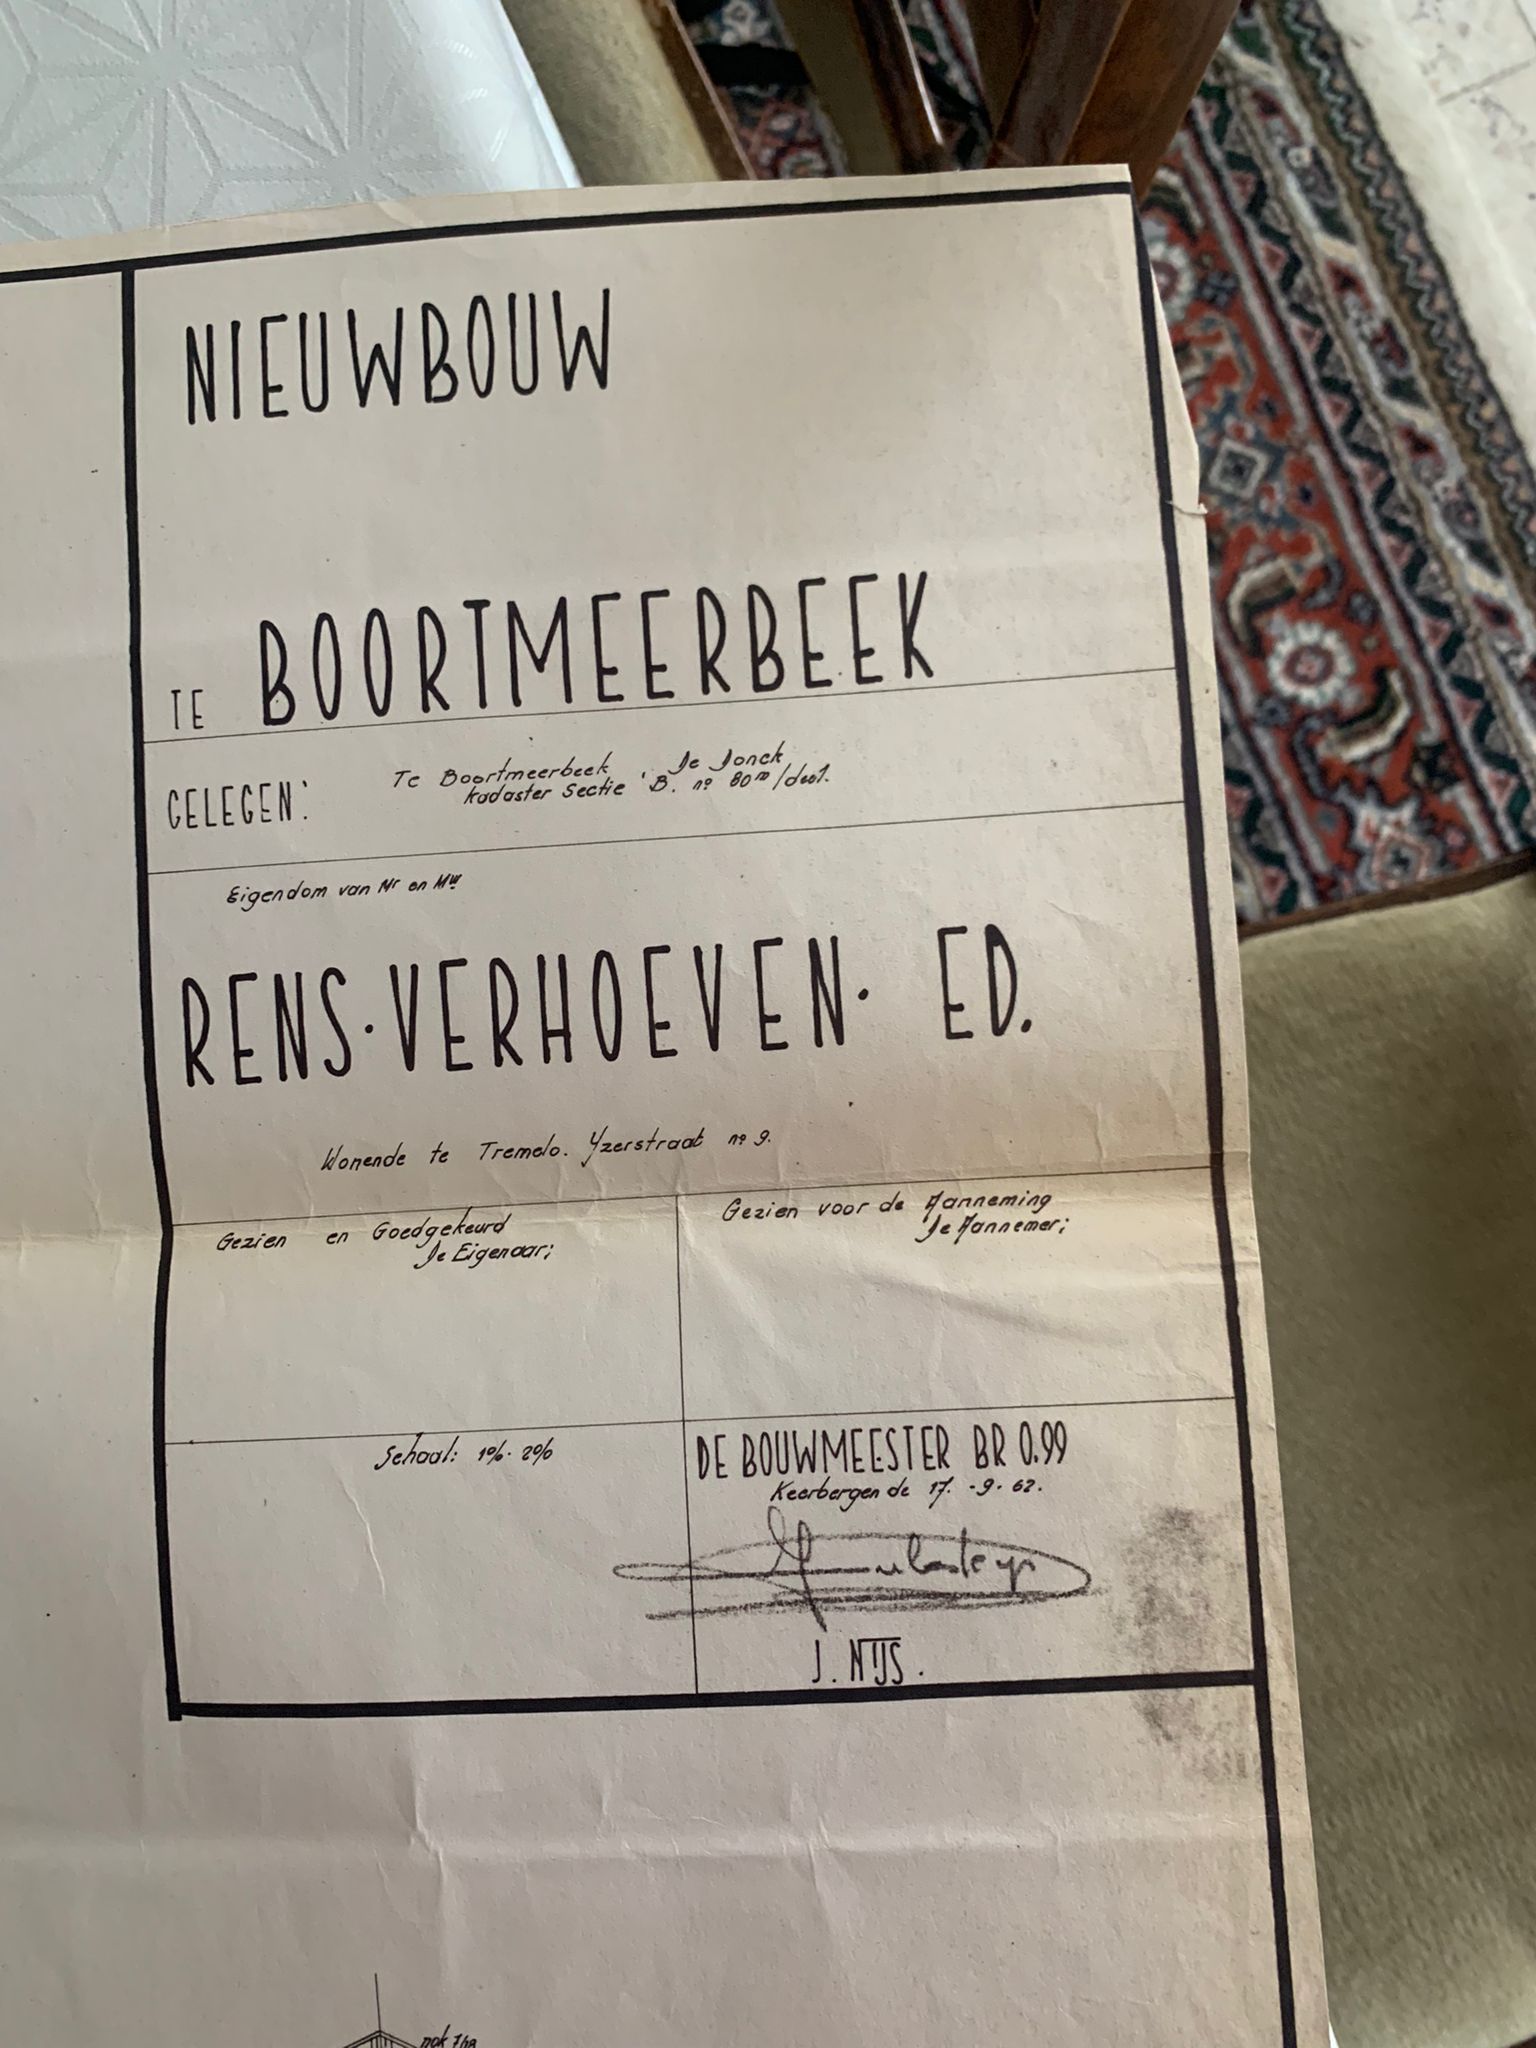 NIEUWBOUW
TE BOORTMEERBEEK
GELEGEN: Te Boortmeerbeek De Jonck
kadaster Sectie 'B. nº 80ᵐ/deel.
Eigendom van Mr en Mw
RENS·VERHOEVEN· ED.
Wonende te Tremelo. Yzerstraat nº 9.
Gezien en Goedgekeurd
De Eigenaar;
Gezien voor de Aanneming
De Aannemer;
Schaal: 1%. 2%
DE BOUWMEESTER BR 0.99
Keerbergen de 17. -9- 62.
J. NIJS.
nok